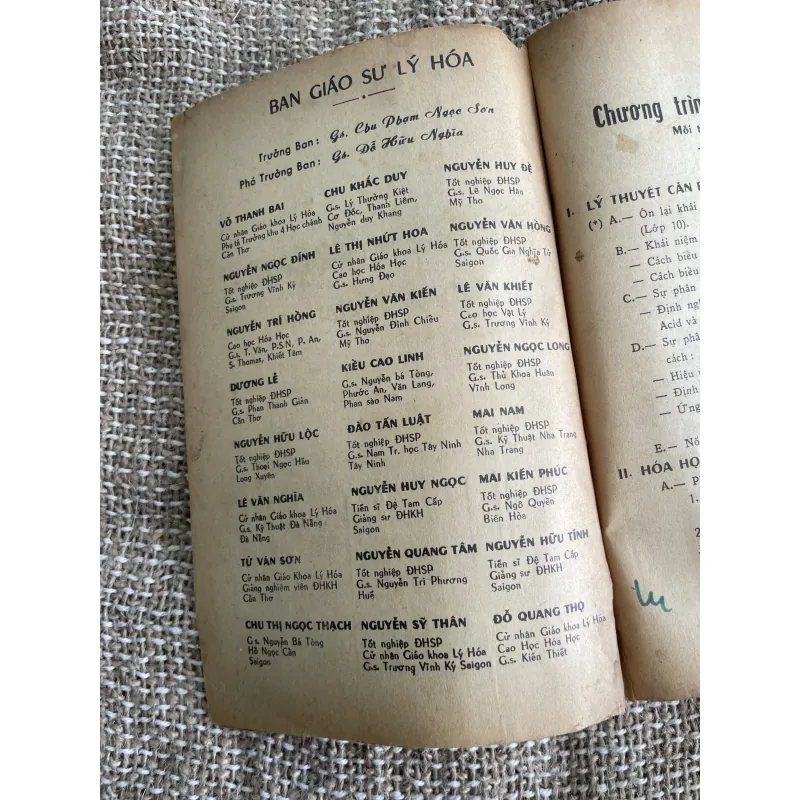 BAN GIÁO SƯ LÝ HÓA
Trưởng Ban : Gs. Chu Phạm Ngọc Sơn
Phó Trưởng Ban : Gs. Đỗ Hữu Nghĩa
VÕ THANH BAI
Cử nhân Giáo khoa Lý Hóa
Phụ tá Trưởng khu 4 Học chánh
Cần Thơ
NGUYỄN NGỌC ĐỈNH
Tốt nghiệp ĐHSP
G.s. Trương Vĩnh Ký
Saigon
NGUYỄN TRÍ HỒNG
Cao học Hóa Học
G.s, T. Văn, P.S.N, P. An,
S. Thomas, Khiết Tâm
DƯƠNG LỄ
Tốt nghiệp ĐHSP
G.s. Phan Thanh Giản
Cần Thơ
NGUYỄN HỮU LỘC
Tốt nghiệp ĐHSP
G.s. Thoại Ngọc Hầu
Long Xuyên
LÊ VĂN NGHĨA
Cử nhân Giáo khoa Lý Hóa
G.s. Kỹ Thuật Đà Nẵng
Đà Nẵng
TỪ VĂN SƠN
Cử nhân Giáo Khoa Lý Hóa
Giảng nghiệm viên ĐHKH
Cần Thơ
CHU THỊ NGỌC THẠCH
G.s. Nguyễn Bá Tòng
Hồ Ngọc Cẩn
Saigon
CHU KHẮC DUY
G.s. Lý Thường Kiệt
Cơ Đốc, Thanh Liêm,
Nguyễn duy Khang
LÊ THỊ NHỨT HOA
Cử nhân Giáo khoa Lý Hóa
Cao học Hóa Học
G.s. Hưng Đạo
NGUYỄN VĂN KIẾN
Tốt nghiệp ĐHSP
G.s. Nguyễn Đình Chiểu
Mỹ Tho
KIỀU CAO LINH
G.s. Nguyễn bá Tòng,
Phước An, Văn Lang,
Phan sào Nam
ĐÀO TẤN LUẬT
Tốt nghiệp ĐHSP
G.s. Nam Tr. học Tây Ninh
Tây Ninh
NGUYỄN HUY NGỌC
Tiến sĩ Đệ Tam Cấp
Giảng sư ĐHKH
Saigon
NGUYỄN QUANG TÂM
Tốt nghiệp ĐHSP
G.s. Nguyễn Tri Phương
Huế
NGUYỄN SỸ THÂN
Tốt nghiệp ĐHSP
Cử nhân Giáo khoa Lý Hóa
G.s. Trương Vĩnh Ký Saigon
NGUYỄN HUY ĐỆ
Tốt nghiệp ĐHSP
G.s. Lê Ngọc Hân
Mỹ Tho
NGUYỄN VĂN HỒNG
Tốt nghiệp ĐHSP
G.s. Quốc Gia Nghĩa Tử
Saigon
LÊ VĂN KHIẾT
Tốt nghiệp ĐHSP
Cao học Vật Lý
G.s. Trương Vĩnh Ký
NGUYỄN NGỌC LONG
Tốt nghiệp ĐHSP
G.s. Thủ Khoa Huân
Vĩnh Long
MAI NAM
Tốt nghiệp ĐHSP
G.s. Kỹ Thuật Nha Trang
Nha Trang
MAI KIẾN PHÚC
Tốt nghiệp ĐHSP
G.s. Ngô Quyền
Biên Hòa
NGUYỄN HỮU TÍNH
Tiến sĩ Đệ Tam Cấp
Giảng sư ĐHKH
Saigon
ĐỖ QUANG THỌ
Cử nhân Giáo khoa Lý Hóa
Cao Học Hóa Học
G.s. Kiến Thiết
Chương trìn
Môi t
I. LÝ THUYẾT CĂN
(*) A.— Ôn lại khái
(Lớp 10).
B.— Khái niệm
— Cách biểu
— Cách biểu
C.— Sự phân
— Định ngh
Acid và
D.— Sự phâ
cách :
— Hiệu
— Định
— Ứng
E.— Nố
II. HÓA HỌ
A.— P
1.
2